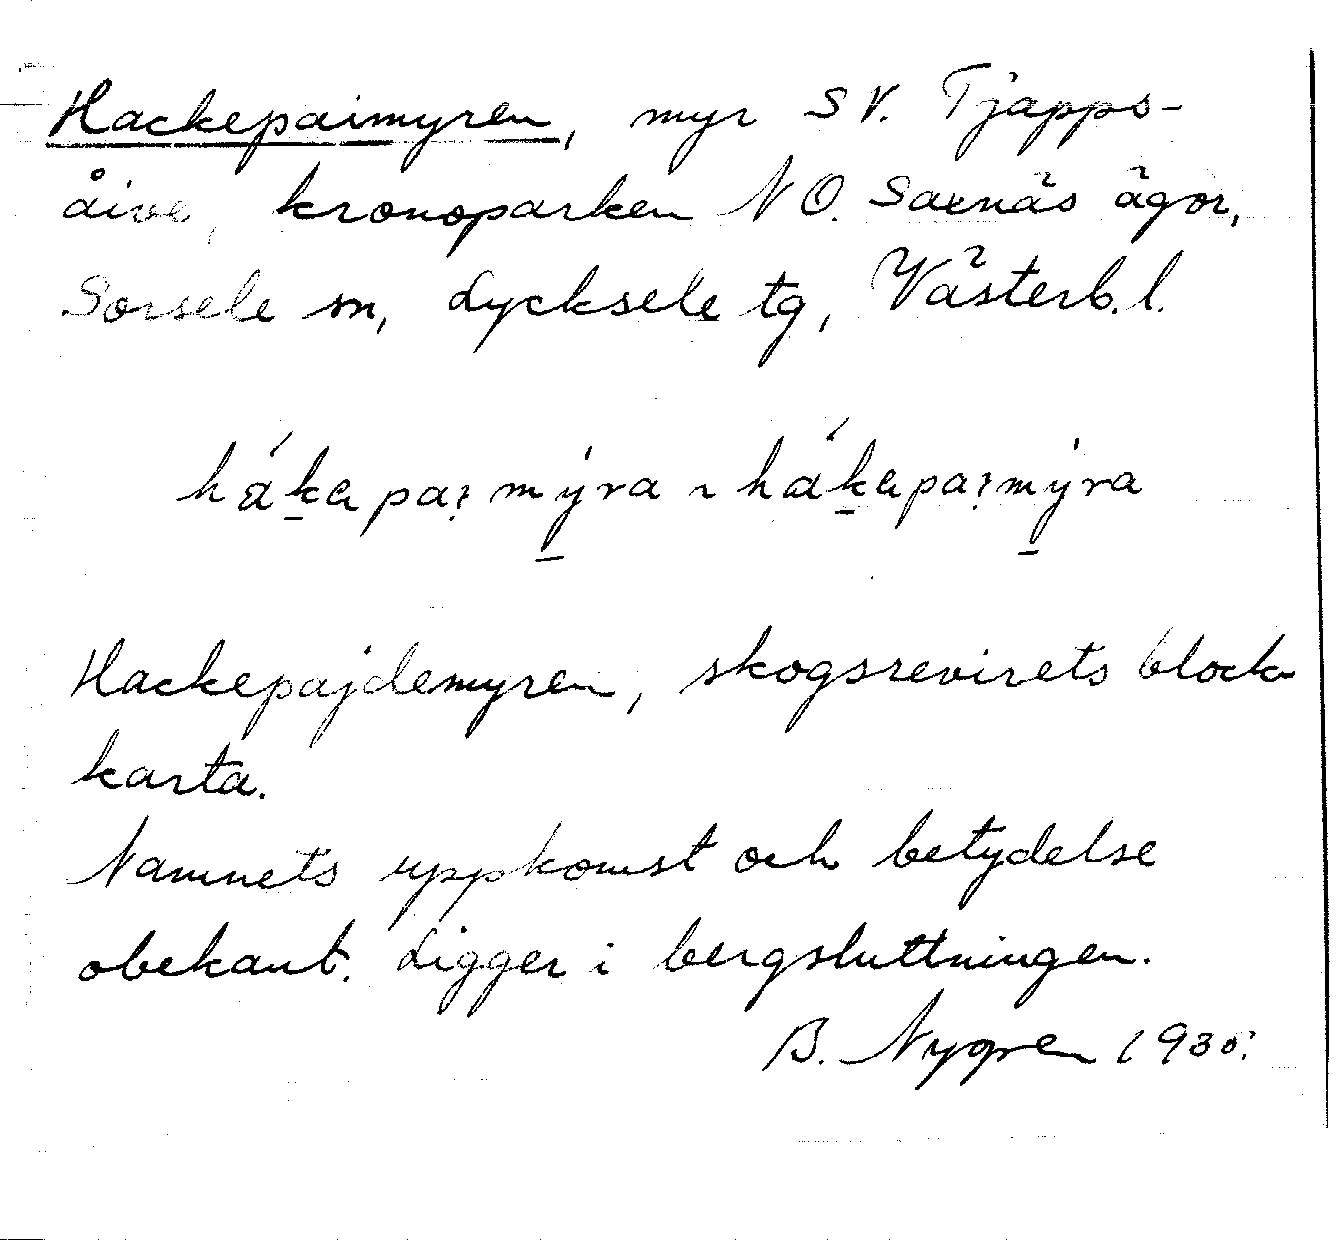 Hackepaimyren, myr SV. Tjapps-
åive, kronoparken NO. Saxnäs ägor,
Sorsele sn, Lycksele tg, Västerb. l.
Hackepajdemyren, skogsrevirets block-
karta.
Namnets uppkomst och betydelse
obekant. Ligger i bergsluttningen.
B. Nygren 1935.